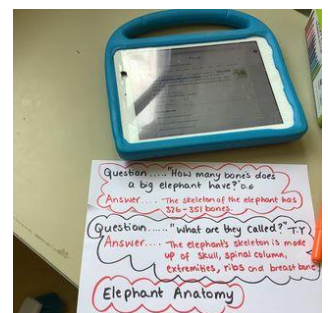 Question....."How many bones does
a big elephant have?" D.G
Answer.... The skeleton of the elephant has
326-351 bones.
Question....."What are they called?" T.Y
Answer.... The elephant's skeleton is made
up of skull, spinal column,
extremities, ribs and breast bone
Elephant Anatomy